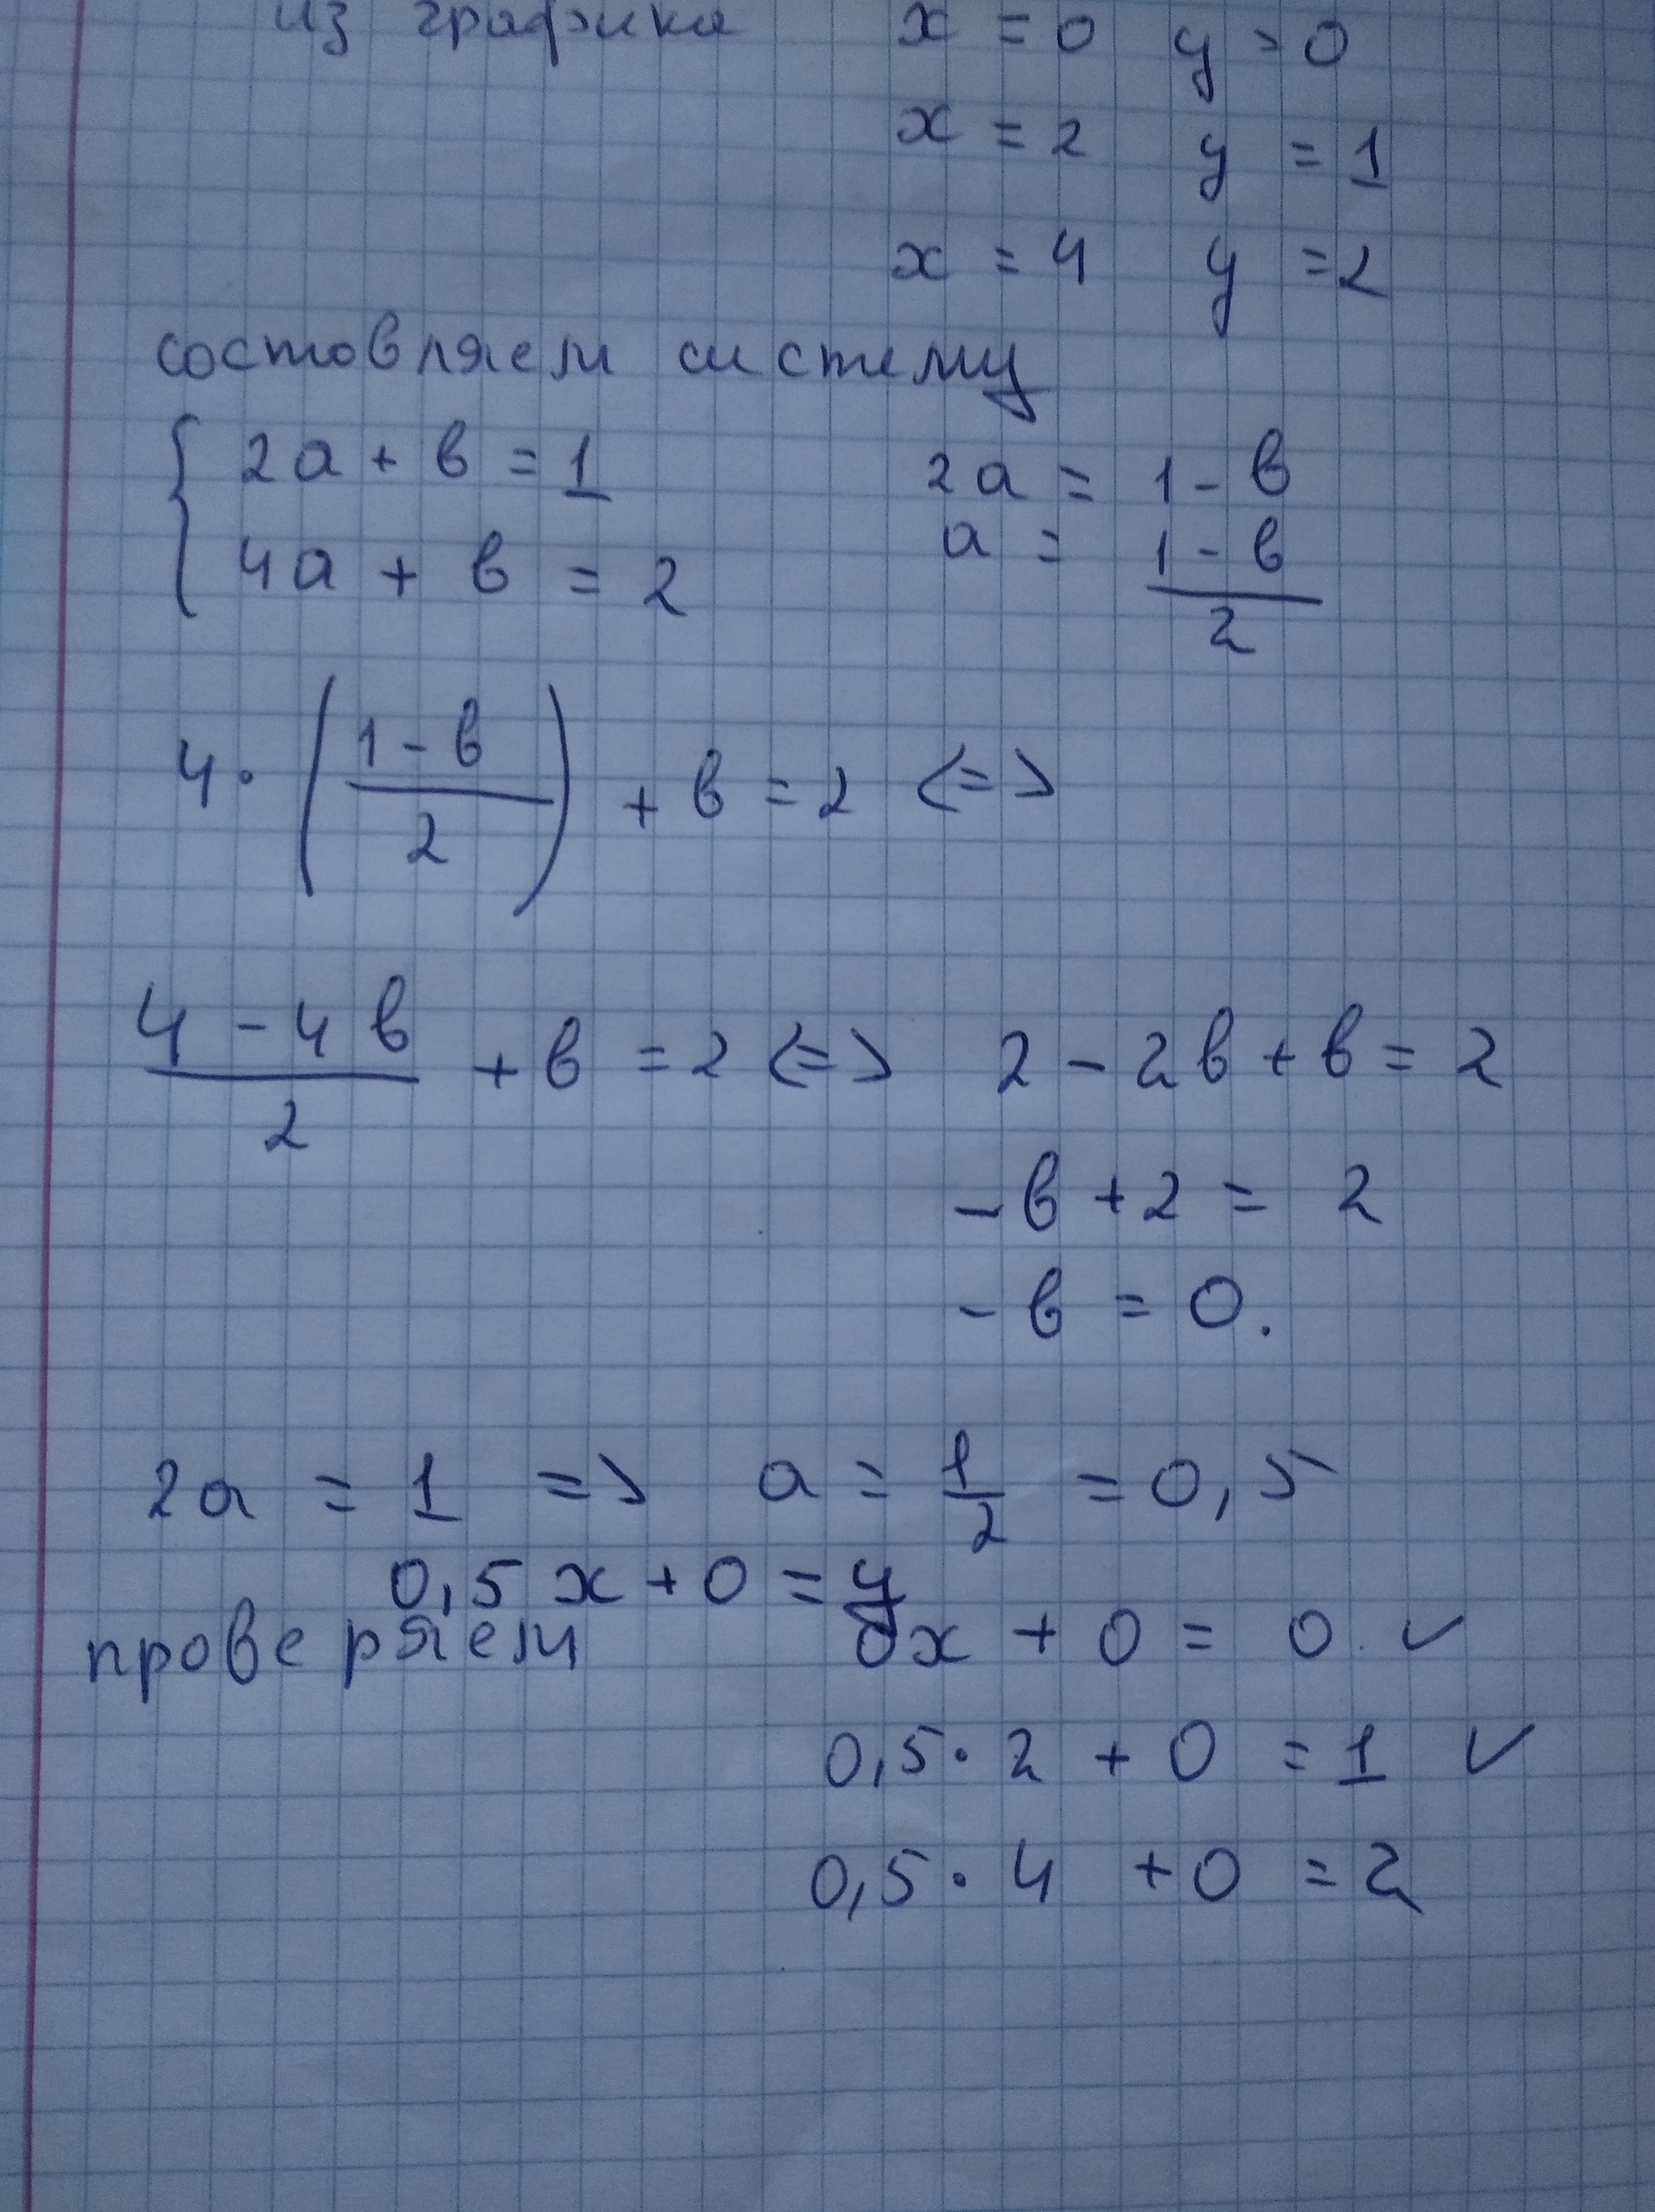 из графика x = 0 y = 0
x = 2 y = 1
x = 4 y = 2
состовляем систему
{ 2a + b = 1
4a + b = 2
2a = 1 - b
a = (1 - b)/2
4 · ((1 - b)/2) + b = 2 <=>
(4 - 4b)/2 + b = 2 <=> 2 - 2b + b = 2
- b + 2 = 2
- b = 0.
2a = 1 => a = 1/2 = 0,5
0,5 x + 0 = y
проверяем 0x + 0 = 0. ✓
0,5 · 2 + 0 = 1 ✓
0,5 · 4 + 0 = 2